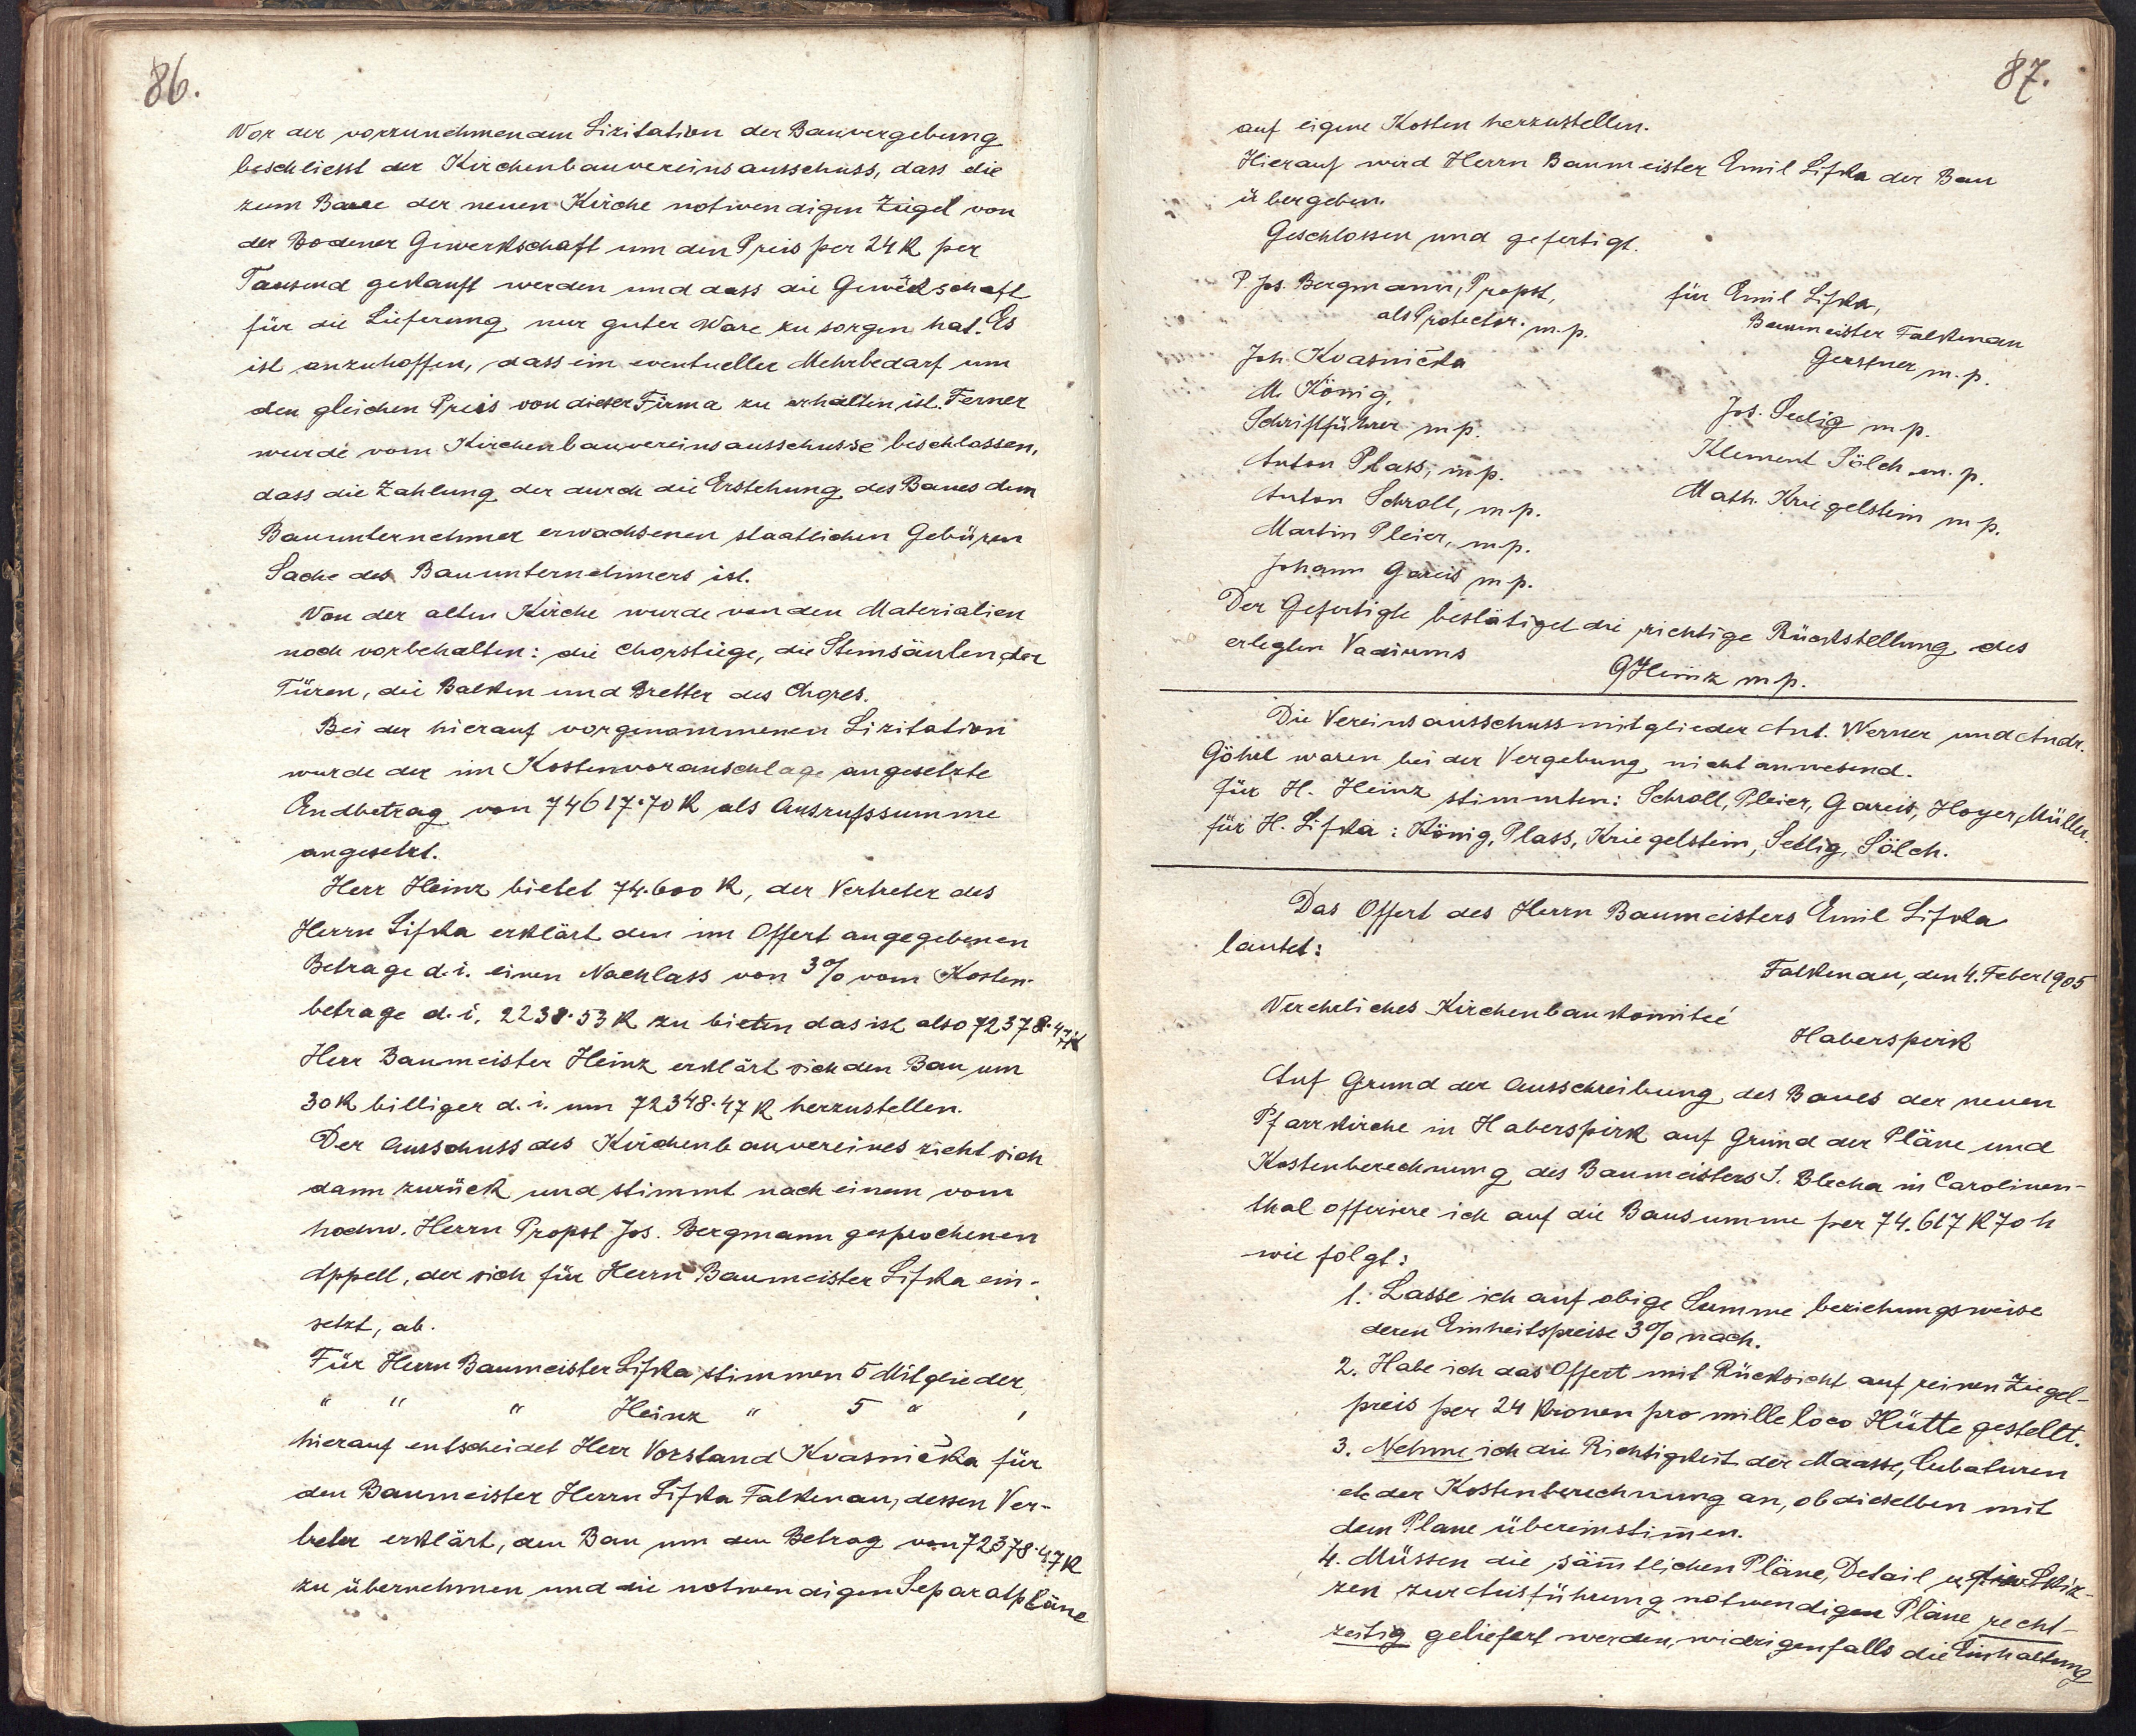 86.
Vor der vorzunehmenden Lizitation der Bauvergebung
beschliesst der Kirchenbauvereinsausschuss, dass die
zum Baue der neuen Kirche notwendigen Ziegel von
der Bodener Gewerkschaft um den Preis per 24 K per
Tausend gekauft werden und dass die Gewerkschaft
für die Lieferung nur guter Ware zu sorgen hat. Es
ist anzuhoffen, dass ein eventueller Mehrbedarf um
den gleichen Preis von dieser Firma zu erhalten ist. Ferner
wurde vom Kirchenbauvereinsausschusse beschlossen,
dass die Zahlung der durch die Erstehung des Baues dem
Bauunternehmer erwachsenen staatlichen Gebüren
Sache des Bauunternehmers ist.
Von der alten Kirche wurde von den Materialien
noch vorbehalten: die Chorstiege, die Steinsäulen der
Türen, die Balken und Bretter des Chores.
Bei der hierauf vorgenommenen Lizitation
wurde der im Kostenvoranschlage angesetzte
Endbetrag von 74617·70 K als Ausrufssumme
angesetzt.
Herr Heinz bietet 74.600 K, der Vertreter des
Herrn Lifka erklärt den im Offert angegebenen
Betrage d. i. einen Nachlass von 3% vom Kosten-
betrage d. i. 2238·53 K zu bieten das ist also 72378·47 K
Herr Baumeister Heinz erklärt sich den Bau um
30 K billiger d. i. um 72348·47 K herzustellen.
Der Ausschuss des Kirchenbauvereines zieht sich
dann zurück und stimmt nach einem vom
hochw. Herrn Propst Jos. Bergmann gesprochenen
Appell, der sich für Herrn Baumeister Lifka ein-
setzt, ab.
Für Herrn Baumeister Lifka stimmen 5 Mitglieder,
" " " Heinz " 5 " ,
hierauf entscheidet Herr Vorstand Kvasnička für
den Baumeister Herrn Lifka Falkenau, dessen Ver-
treter erklärt, den Bau um den Betrag von 72378·47 K
zu übernehmen und die notwendigen Separatpläne
87.
auf eigene Kosten herzustellen.
Hierauf wird Herrn Baumeister Emil Lifka der Bau
übergeben.
Geschlossen und gefertigt.
P. Jos. Bergmann, Propst,
als Protector. m. p.
Joh. Kvasnička
M. König,
Schriftführer m p.
Anton Plass, m p.
Anton Schroll, m. p.
Martin Pleier, m. p.
Johann Gareis m p.
für Emil Lifka,
Baumeister Falkenau
Gerstner m. p.
Jos. Seelig m p.
Klement Sölch m. p.
Math. Kriegelstein m p.
Der Gefertigte bestätiget die richtige Rückstellung des
erlegten Vadiums
GHeinz m p.
Die Vereinsausschussmitglieder Ant. Werner und Andr.
Göhrl waren bei der Vergebung nicht anwesend.
für H. Heinz stimmten: Schroll, Pleier, Gareis, Hoyer, Müller.
für H. Lifka: König, Plass, Kriegelstein, Seelig, Sölch.
Das Offert des Herrn Baumeisters Emil Lifka
lautet:
Falkenau, den 4. Feber 1905
Verehrliches Kirchenbaukomiteé
Haberspirk
Auf Grund der Ausschreibung des Baues der neuen
Pfarrkirche in Haberspirk auf Grund der Pläne und
Kostenberechnung des Baumeisters J. Blecha in Carolinen-
thal offeriere ich auf die Bausumme per 74.617 K 70 h
wie folgt:
1. Lasse ich auf obige Summe beziehungsweise
deren Einheitspreise 3% nach.
2. Habe ich das Offert mit Rücksicht auf reinen Ziegel-
preis per 24 Kronen pro mille loco Hütte gestellt.
3. Nehme ich die Richtigkeit der Maasse, Cubaturen
etc der Kostenberechnung an, ob dieselben mit
dem Plane übereinstim̅en.
4. Müssen die säm̅tlichen Pläne, Detail u. Skiz-
zen zur Ausführung notwendigen Pläne recht-
zeitig geliefert werden, widrigenfalls die Einhaltung